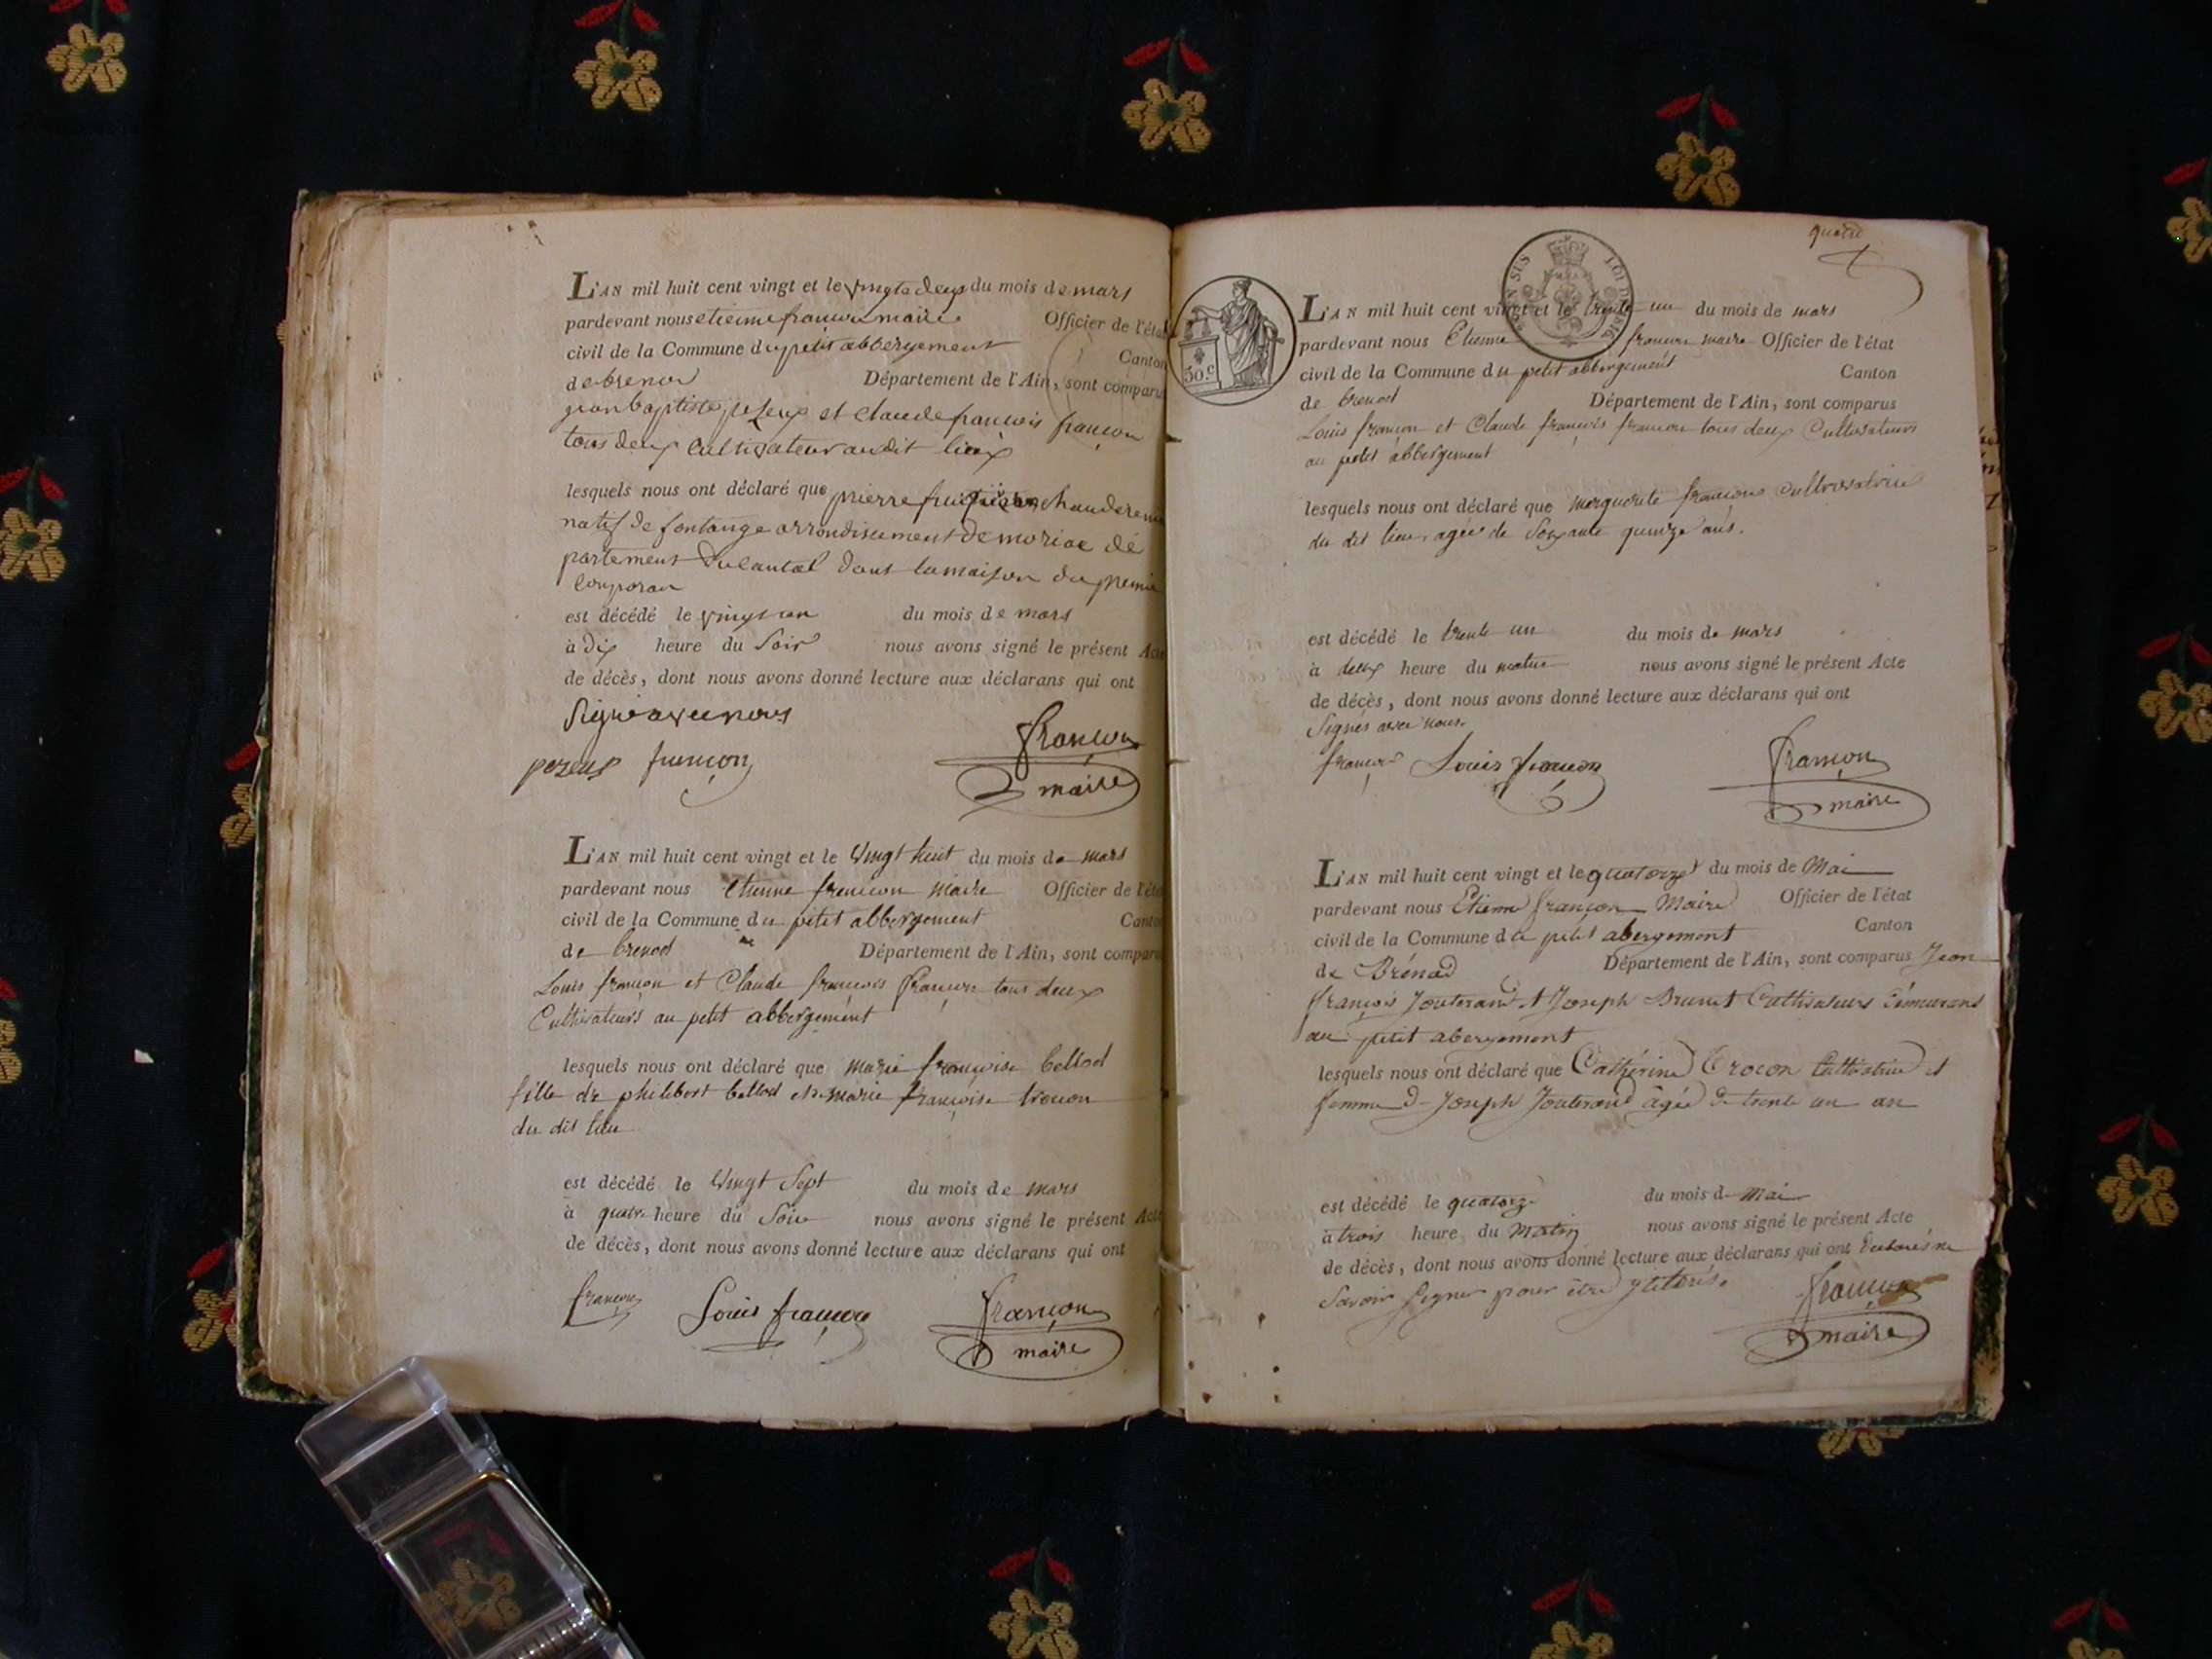 L'AN mil huit cent vingt et le vingte deux du mois de mars
pardevant nous etienne françon maire Officier de l'état
civil de la Commune du petit abbergement Canton
de brenod Département de l'Ain, sont comparus
jean baptiste et claude francois françon
tous deux cultivateur audit lieux
lesquels nous ont déclaré que pierre
natif de fontange arrondisement de moriac dé
partement du cantal dans la maison du premier
comparan
est décédé le vingt un du mois de mars
à dix heure du soir nous avons signé le présent Acte
de décès, dont nous avons donné lecture aux déclarans qui ont
signé avec nous
françon françon
maire
L'AN mil huit cent vingt et le vingt huit du mois de mars
pardevant nous etienne françon maire Officier de l'état
civil de la Commune du petit abbergement Canton
de brenod Département de l'Ain, sont comparus
Louis françon et Claude françois françon tous deux
Cultivateurs au petit abbergement
lesquels nous ont déclaré que marie françoise bellod
fille de philibert bellod et marie françoise trocon
du dit lieu
est décédé le vingt sept du mois de mars
à quatre heure du soir nous avons signé le présent Acte
de décès, dont nous avons donné lecture aux déclarans qui ont
françon Louis françon françon
maire
quatre
30.c
L'AN mil huit cent vingt et le trente un du mois de mars
pardevant nous Etienne françon maire Officier de l'état
civil de la Commune du petit abbergement Canton
de brenod Département de l'Ain, sont comparus
Louis françon et Claude françois françon tous deux Cultivateurs
au petit abbergement
lesquels nous ont déclaré que marguerite françon cultivatrice
du dit lieu, agée de soixante quinze ans.
est décédé le trente un du mois de mars
à deux heure du matin nous avons signé le présent Acte
de décès, dont nous avons donné lecture aux déclarans qui ont
Signés avec nous.
françon Louis françon françon
maire
L'AN mil huit cent vingt et le quatorze du mois de Mai
pardevant nous Etienne françon Maire Officier de l'état
civil de la Commune du petit abergement Canton
de Brénod Département de l'Ain, sont comparus Jean
françois Jouterand et Joseph Brunet Cultivateurs demeurans
au petit abergement
lesquels nous ont déclaré que Cathérine Trocon Cultivatrice et
femme de Joseph Jouterand âgée de trente un an
est décédé le quatorze du mois de Mai
à trois heure du Matin nous avons signé le présent Acte
de décès, dont nous avons donné lecture aux déclarans qui ont
Savoir signer pour être
françon
maire